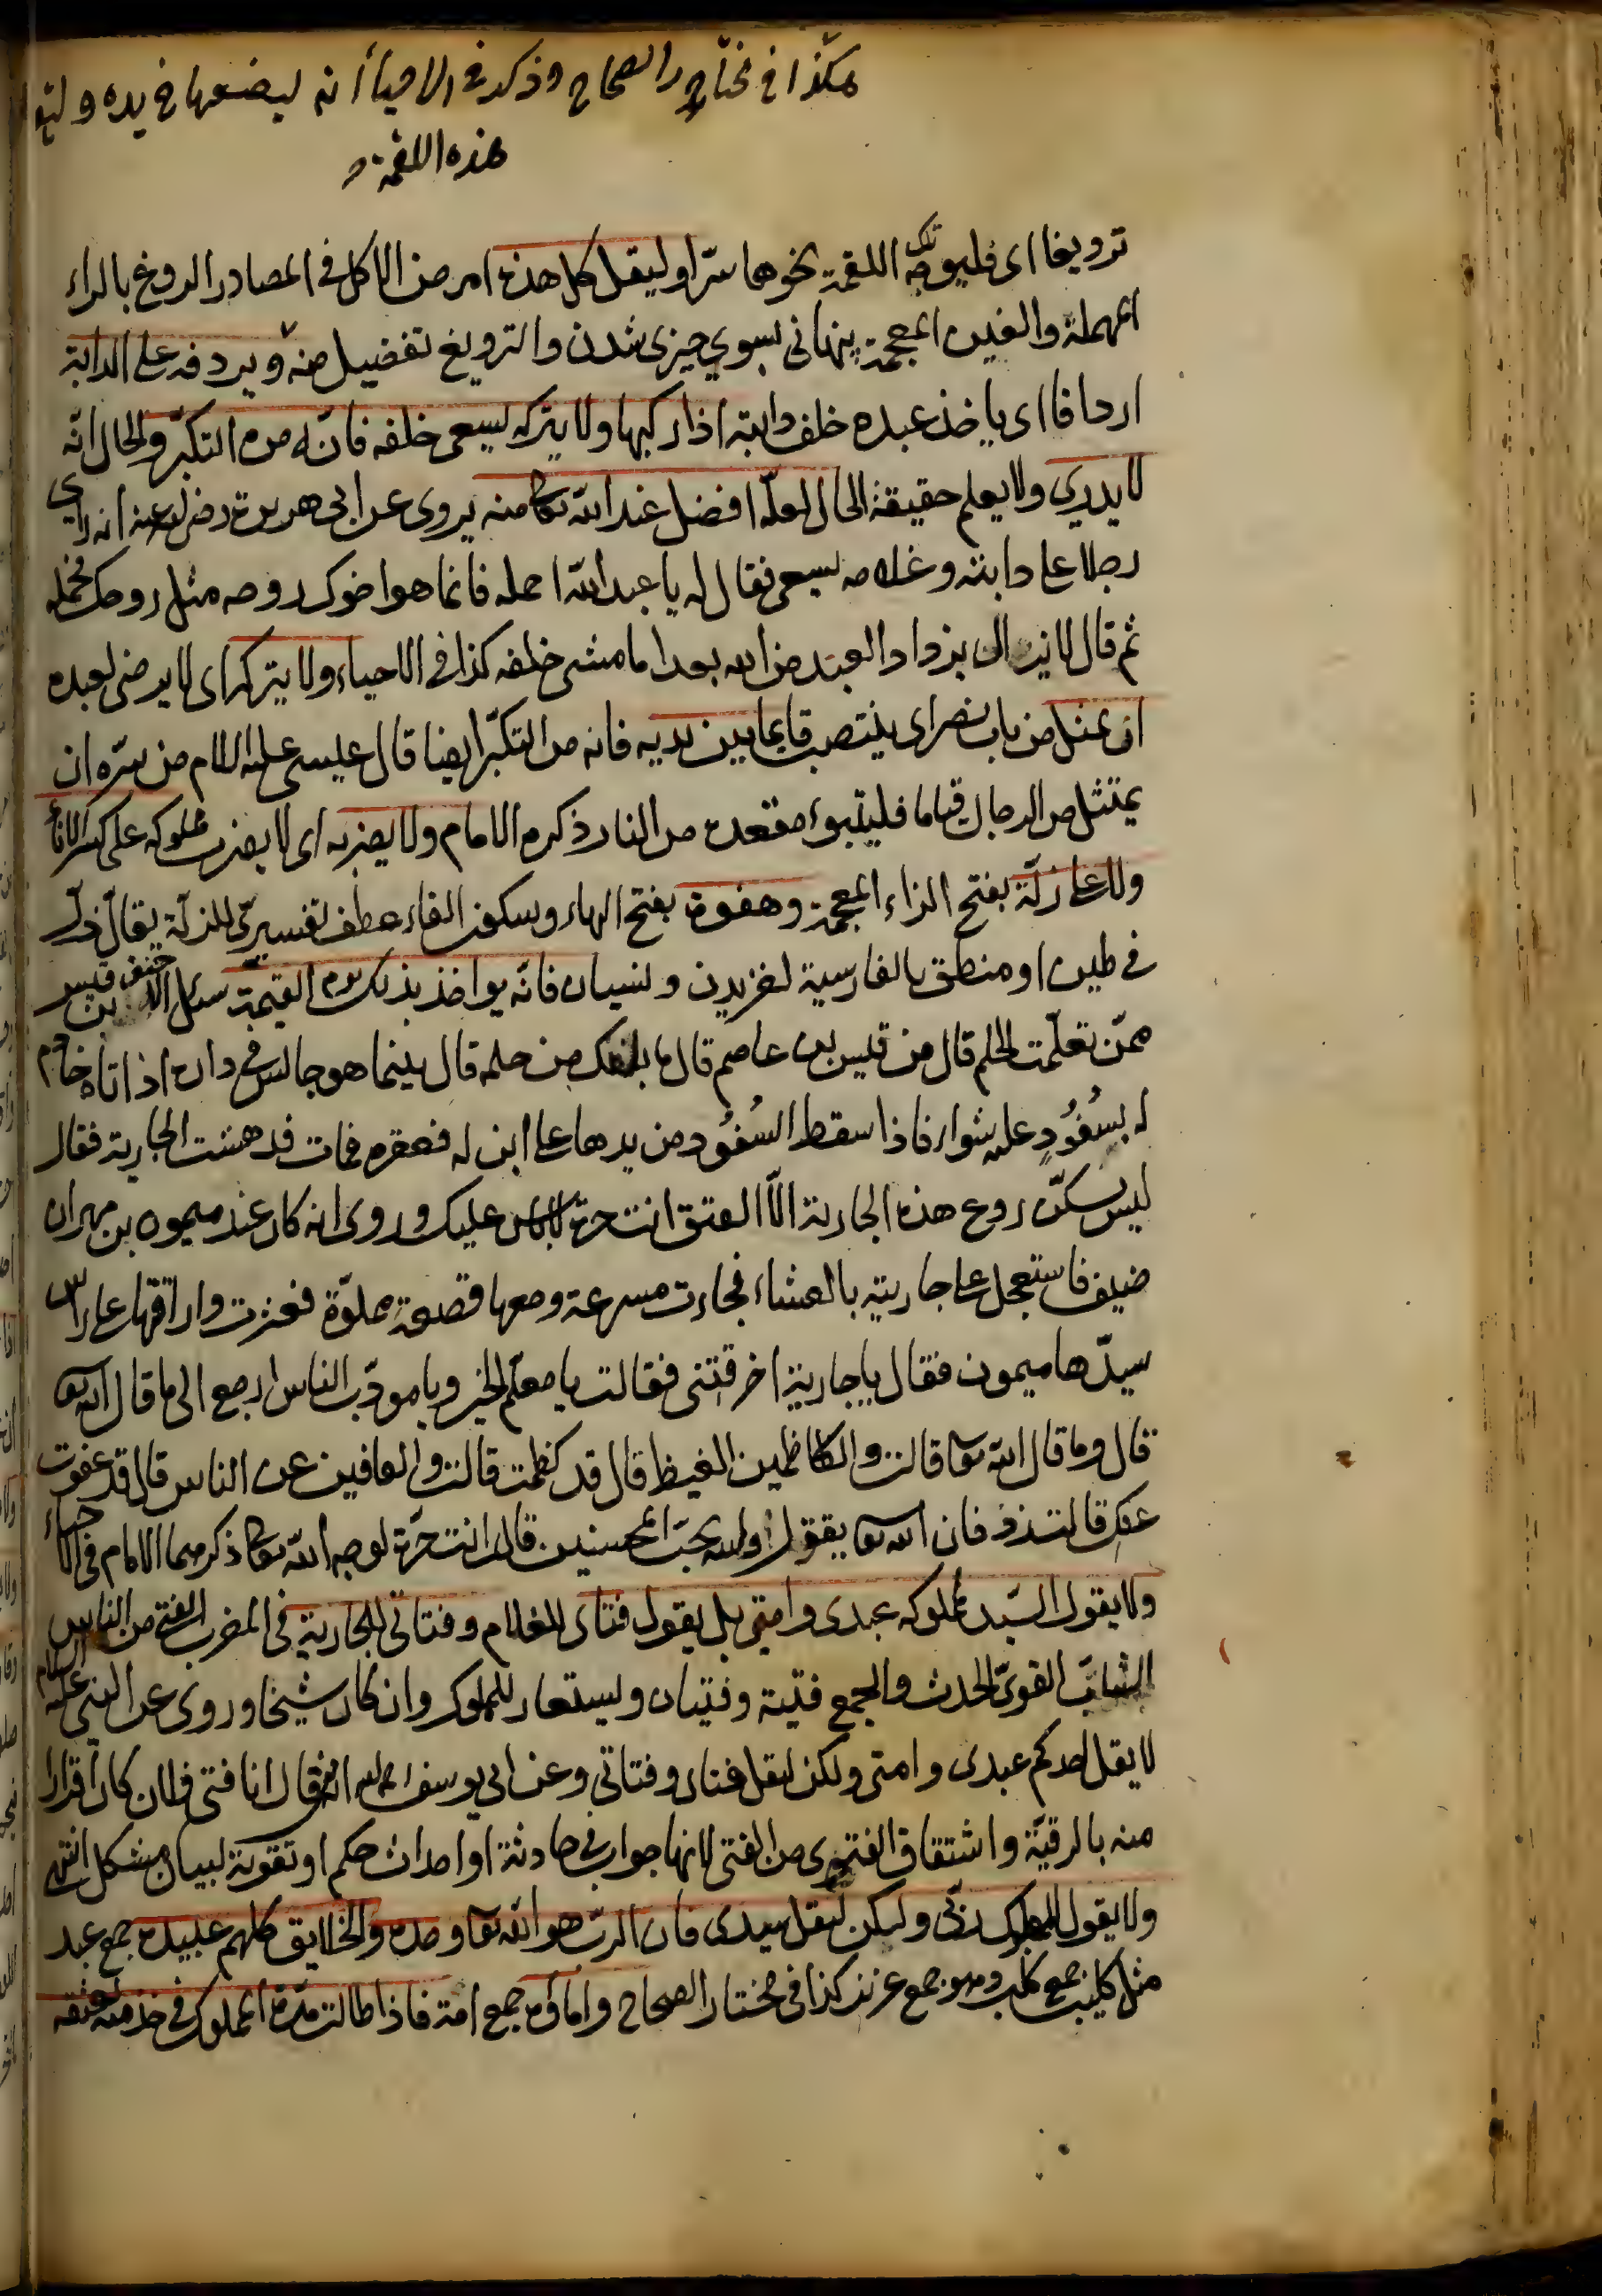 هكذا في مختار الصحاح وذكر في الاحياء انه ليضعها في يده وليقل
هذه اللقمة
ترويغا اى فليوجه تلك اللقمة نحوها سترا وليقل كل هذه امر من الاكل في المصادر الروغ بالراء
المهملة والغين المعجمة پنهانى بسوي چيزى شدن والترويغ تفعيل منه ويردفه على الدابة
اردافا اى ياخذ عبده خلف دابته اذا ركبها ولا يتركه يسعى خلفه فانّه من التكبّر والحال انّه
لا يدري ولا يعلم حقيقة الحال لعلّه افضل عند الله تعا منه يروى عن ابى هريرة رضى الله عنه انه راى
رجلا على دابته وغلامه يسعى فقال له يا عبد الله احمله فانما هو اخوك روحه مثل روحك فحمله
ثم قال لا يزال يزداد العبد من الله بعدا ما مشى خلفه كذا في الاحياء ولا يتركه اى لا يرضى لعبده
ان يمثل من باب نصر اى ينتصب قايما بين يديه فانه من التكبّر ايضا قال عيسى عليه السلام من سرّه ان
يمتثل من الرجال قياما فليتبوء مقعده من النار ذكره الامام ولا يضربه اى لا يضرب مملوكه على كسر الاناء
ولا على زلّة بفتح الزاء المعجمة وهفوة بفتح الهاء وسكون الفاء عطف تفسيرى للزلّة يقال زلّ
في طين او منطق بالفارسية لغزيدن ونسيان فانّه يواخذ بذلك يوم القيمة سئل الاحنف بن قيس
ممّن تعلّمت الحلم قال من قيس بن عاصم قال ما بلغك من حلمه قال بينما هو جالس في داره اذا تاه خادم
له بسُفُّودٍ عليه شواء فاذا سقط السُفُّود من يدها على ابن له فعقره فمات فدهشت الجارية فقال
ليس يسكّن روع هذه الجارية الّا العتق انت حرة لا باس عليك وروى انه كان عند ميمون بن مهران
ضيف فاستعجل على جاريته بالعشاء فجاءت مسرعة ومعها قصعة مملوّة فعثرت واراقتها على راس
سيّدها ميمون فقال يا جارية احرقتنى فقالت يا معلّم الخير ويا مودّب الناس ارجع الى ما قال الله تعا
قال وما قال الله تعا قالت والكاظمين الغيظ قال قد كظمت قالت والعافين عن الناس قال قد عفوت
عنك قالت زد فان الله تعا يقول والله يحبّ المحسنين قال انت حرّة لوجه الله تعا ذكرهما الامام في الاحياء
ولا يقول السّيد لمملوكه عبدى وامتى بل يقول فتاى للغلام وفتاتى للجارية في المغرب الفتى من الناس
الشابّ القوىّ الحدث والجمع فتية وفتيان ويستعار للمملوك وان كان شيخا وروى عن النبى عليه السلام
لا يقل احدكم عبدى وامتى ولكن ليقل فتاى وفتاتى وعن ابى يوسف رحمه الله من قال انا فتى فلان كان اقرارا
منه بالرقيّة واشتقاق الفتوى من الفتى لانها جواب في حادثة او احداث حكم او تقوية لبيان مشكل انتهى
ولا يقول المملوك ربّى وليكن ليقل سيدى فان الربّ هو الله تعا وحده والخلايق كلهم عبيده جمع عبد
مثل كليب جمع كلب وهو جمع عزيز كذا في مختار الصحاح واماؤه جمع امة فاذا طالت مدّة المملوك في خدمته يعتقه